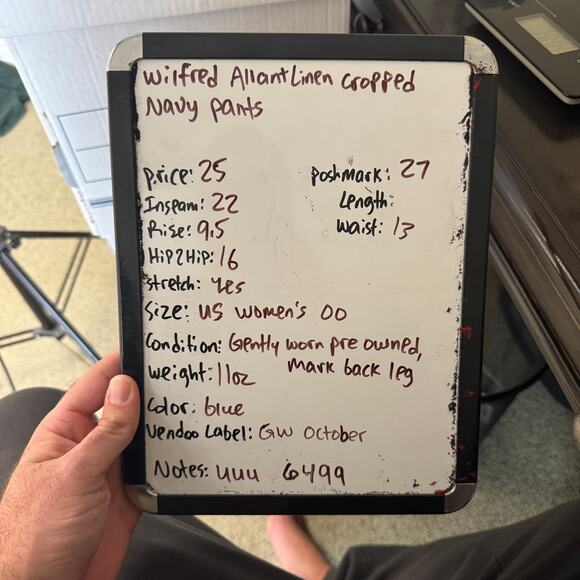 Wilfred Allant Linen cropped
Navy pants
price: 25
Poshmark: 27
Inseam: 22
Length:
Rise: 9.5
Waist: 13
HiP2HiP: 16
stretch: yes
Size: US Women's 00
Condition: Gently worn pre owned,
Mark back leg
weight: 11oz
Color: blue
Vendoo Label: GW October
Notes: uuu 6499